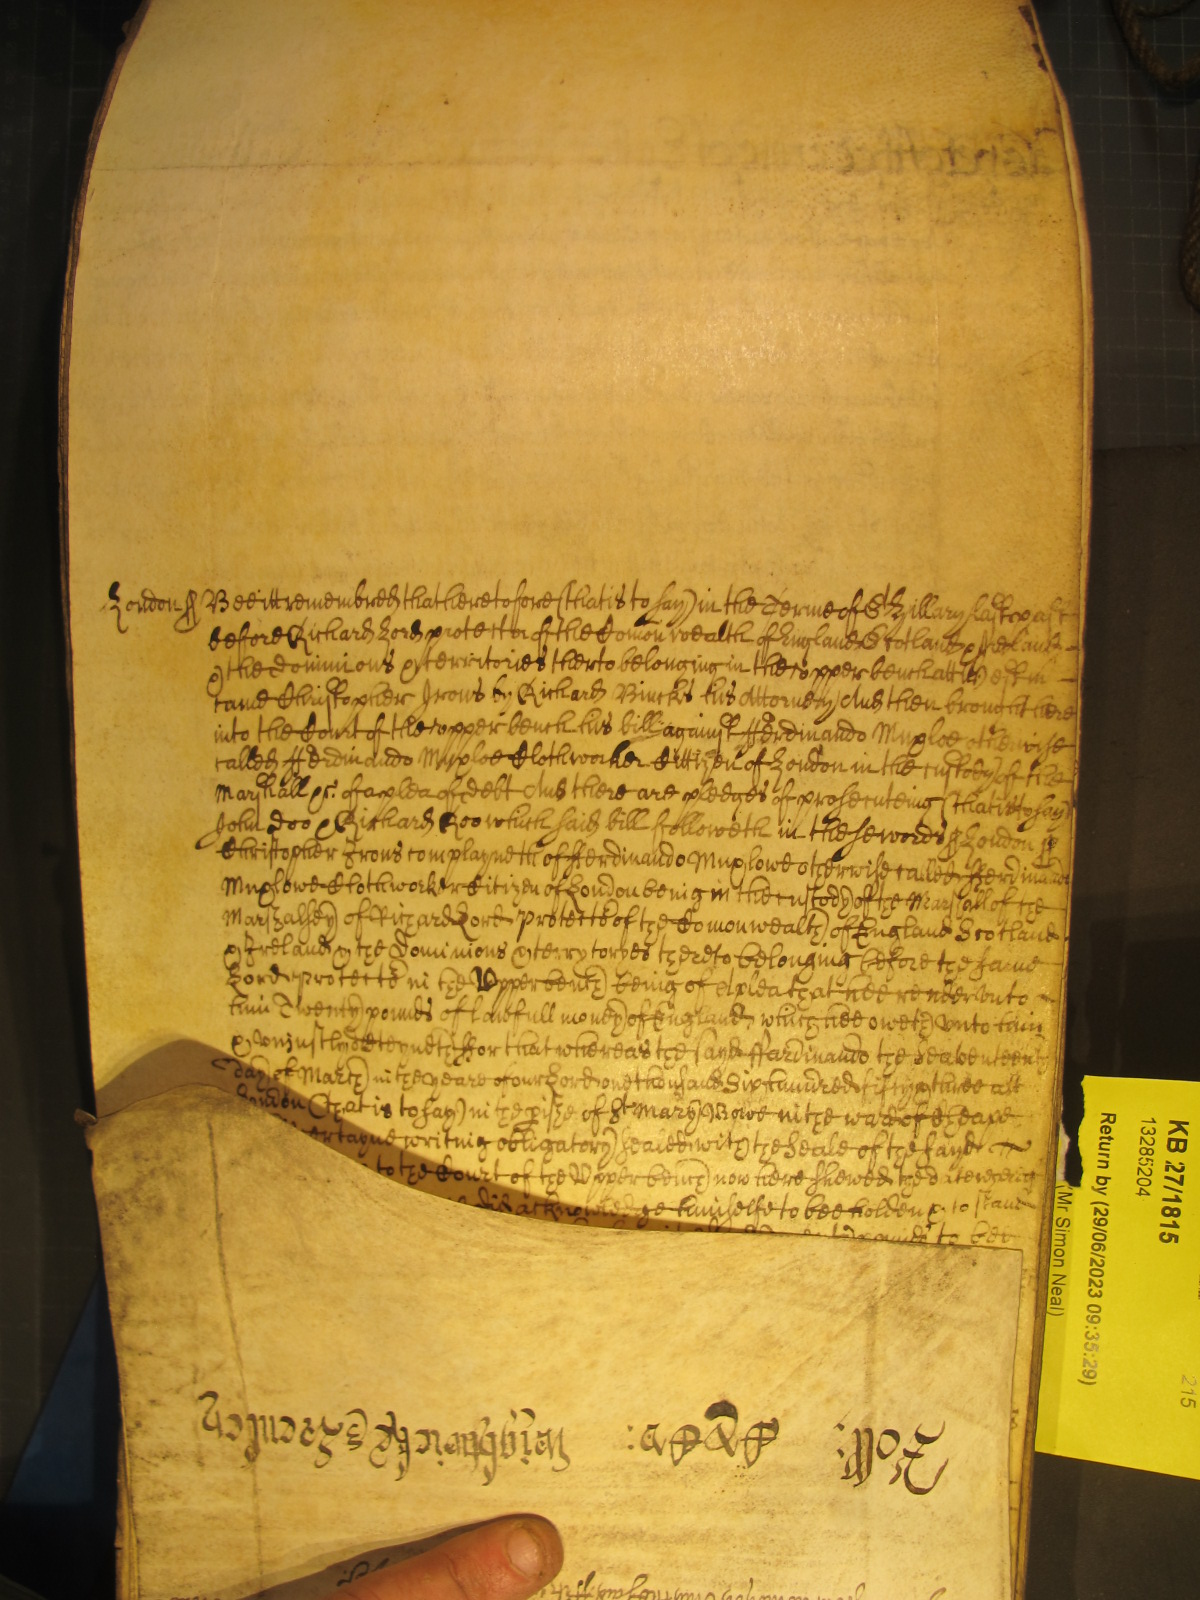 London ss Bee itt remembred that heretofore (that is to say) in the Terme of St Hillary last past
before Richard Lord protector of the Comonwealth of England Scotland & Ireland
& the dominions & territories therto belonging in the upper bench att Westm
came Christopher Irons by Richard Binckes his Attorney And then brought here
into the Court of the upper bench his bill against Fferdinando Muxloe otherwise
called Fferdinando Muxloe Clothworker Cittizen of London in the custody of the
Marshall &c. of a plea of debt And there are pledges of prosecuteing (that is to say)
John Doo & Richard Roo which said bill followeth in these words ss London ss
Christopher Irons complayneth of Fferdinando Muxlowe otherwise called Fferdinando
Muxlowe Clothworker Citizen of London being in the custody of the Marshall of the
Marshalsey of Richard Lord Protector of the Comonwealth of England Scotland
& Ireland & the Dominions & terrytoryes thereto belonging before the same
Lord Protector in the Upper bench being of A plea that hee render unto
him Twenty pounds of lawfull money of England which hee oweth unto him
& uniustly deteyneth Ffor that whereas the sayd Ffardinando the seaventeenth
day of March in the yeare of our Lord one thousand Six hundred fifty & three att
London (that is to say) in the pish of St Mary Bowe in the ward of Cheape
certayne writing obligatory sealed with the seale of the sayd
to the Court of the Upper bench now here shewed the date whereof is
did acknowledge himselfe to bee holden & to stand
to bee
Roll:
KB 27/1815
13285204
Return by (29/06/2023 09:35:29)
(Mr Simon Neal)
215